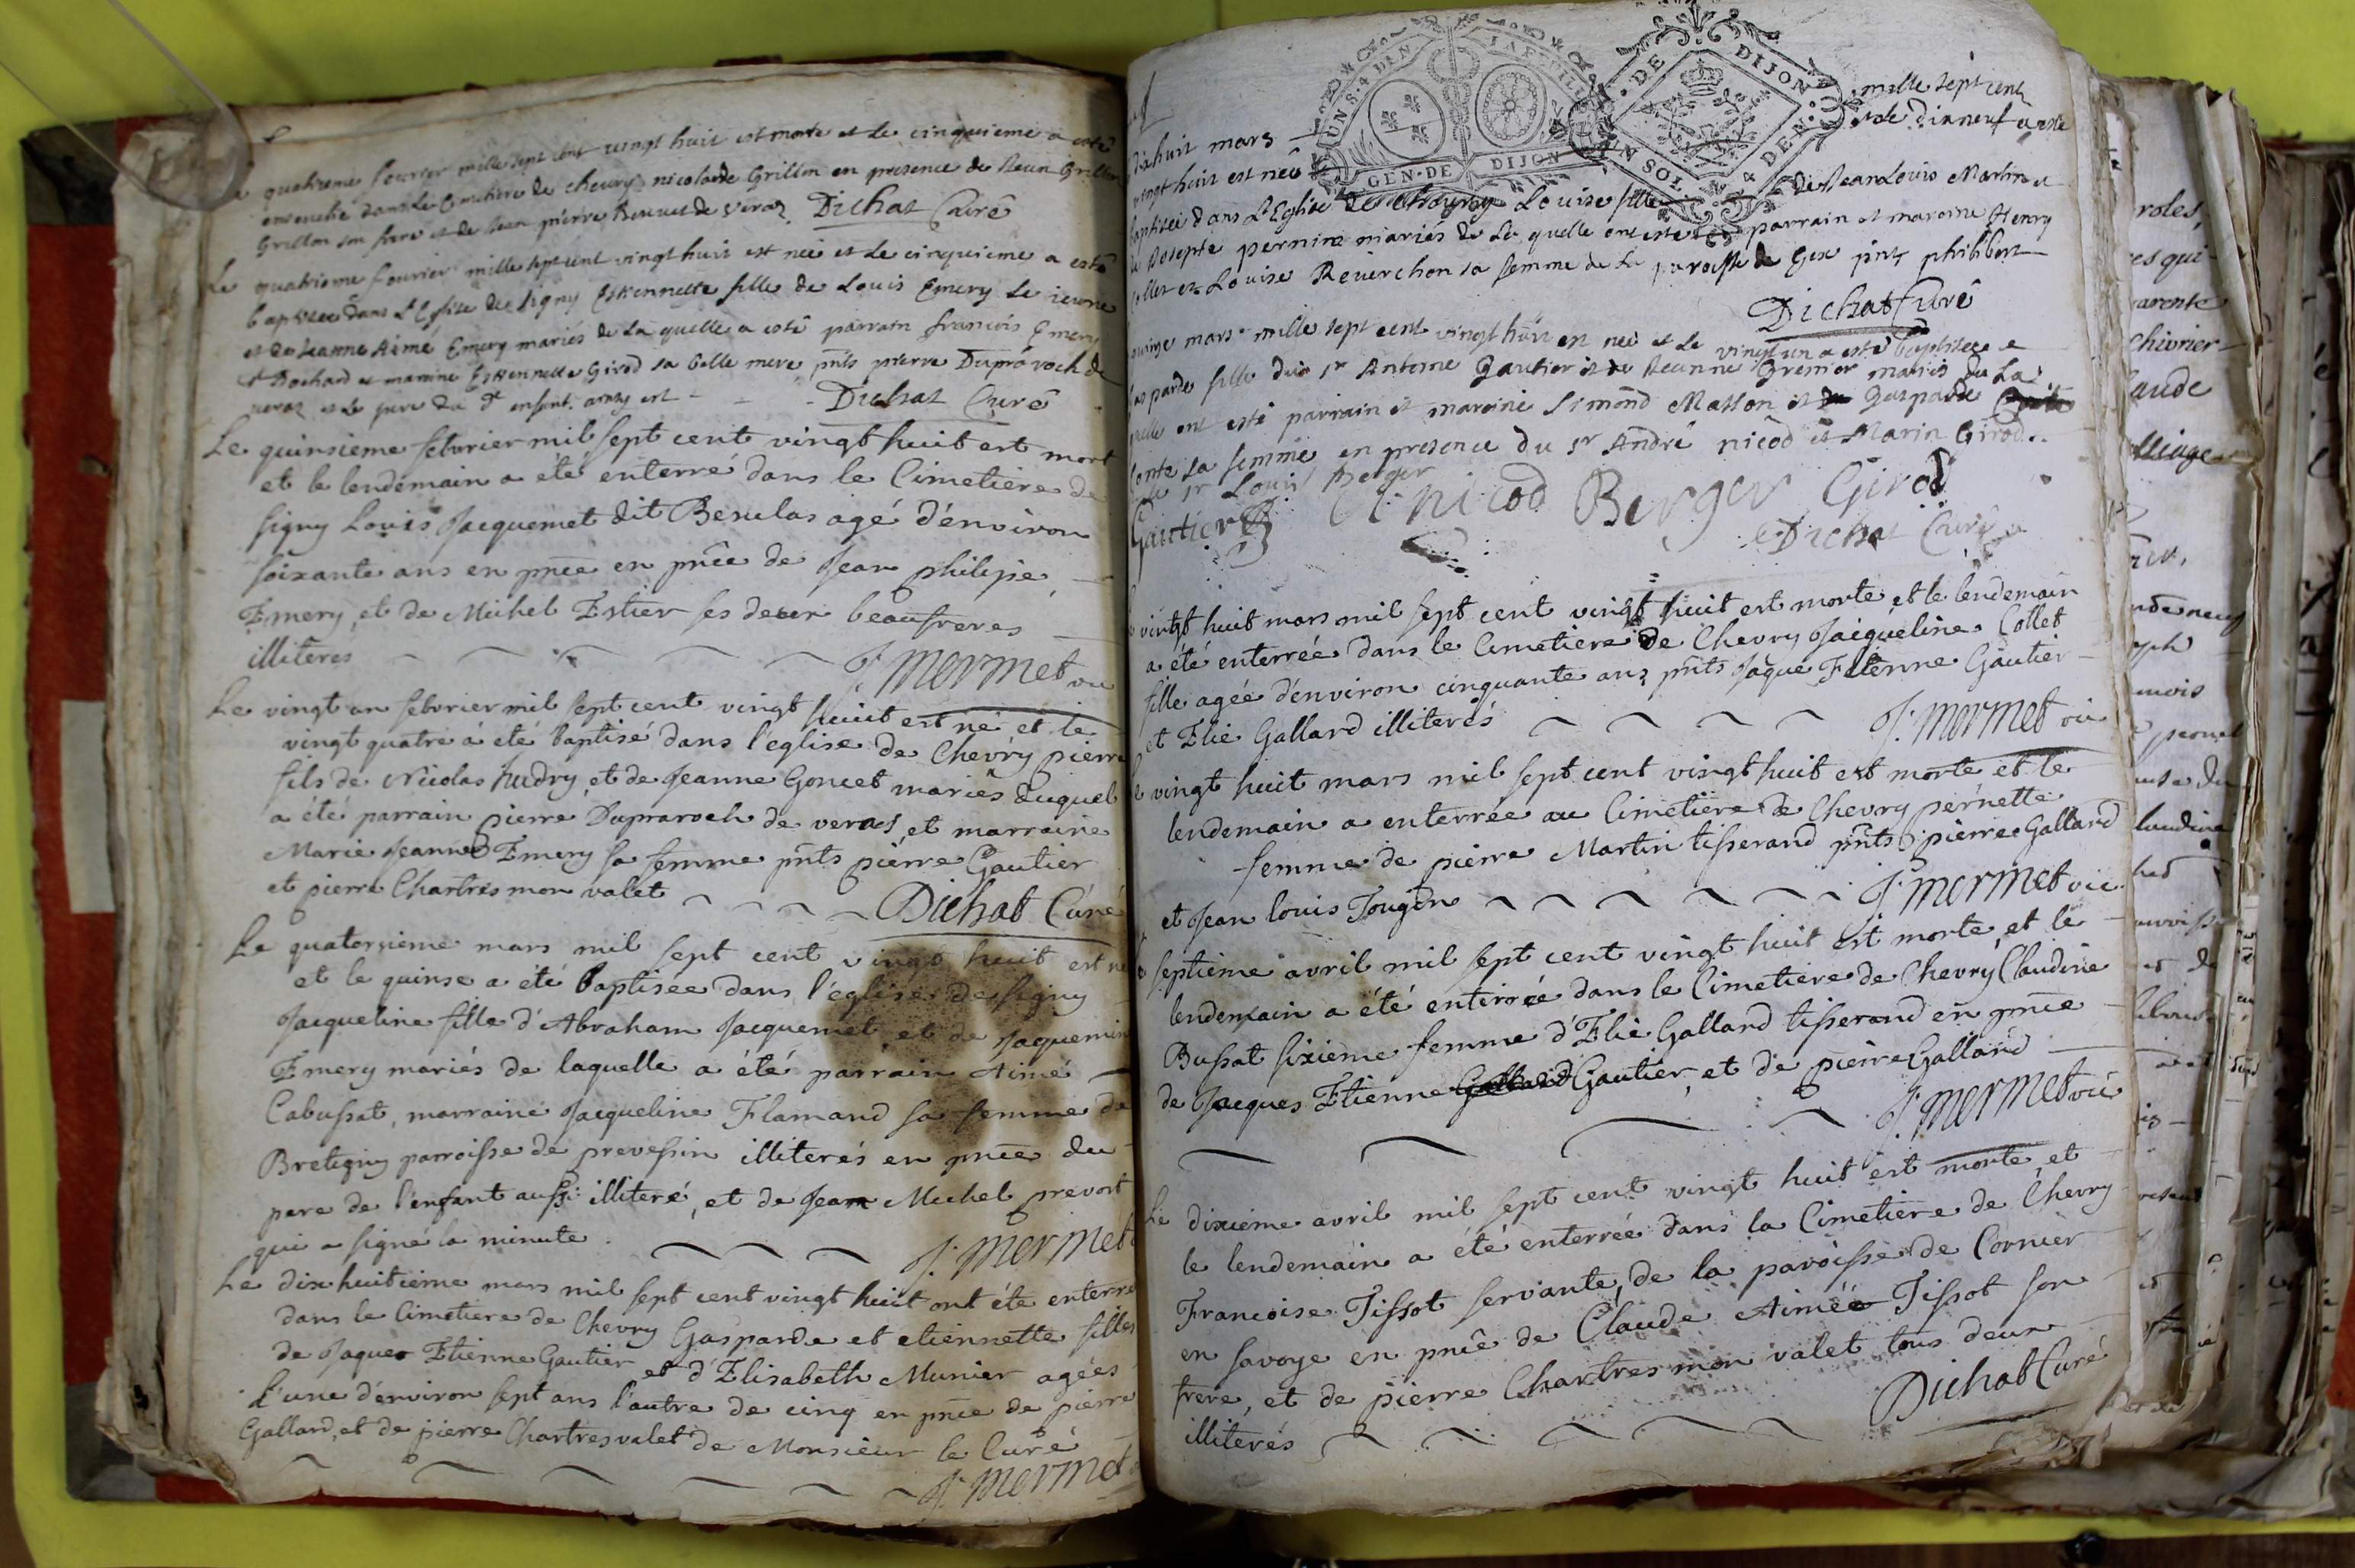 quatrieme fevrier mille sept cent vingt huit est morte et le cinquieme a esté
ensevelie dans le Cimetiere de chevry nicolarde Grillon en presence de Jean Grillon
Grillon son frere et de Jean pierre de veraz Dichat Curé
Le quatrieme fevrier mille sept cent vingt huit est neé et le cinquieme a esté
baptisée dans L'Eglise de Signy Estiennette fille de Louis Emery Le ieune
et de Jeanne Aimé Emery mariés de La quelle a esté parrain francois Emery
Dochard et marrine Estiennette Girod sa belle mere pnts pierre Dupraroch de
veraz et Le pere du dt enfant. Dichat Curé
Le quinsieme febvrier mil sept cent vingt huit est mort
et le lendémain a été enterré dans le Cimetiere de
signy Louis Jacquemet dit Besulas agé d'énviron
soixante ans en pnce en pnce de Jean philipe
Emery, et de Michel Estier ses deux beaufreres
illiteres J. Mermet vic
Le vingt un febvrier mil sept cent vingt huit est né et le
vingt quatre a été baptisé dans l'église de Chevry pierre
fils de Nicolas Audry, et de Jeanne Goncet mariés duquel
a été parrain pierre Dupraroch de veras, et marraine
Marie Jeanne Emery sa femme pnts pierre Gautier
et pierre Chartres mon valet Dichat Curé
Le quatorsieme mars mil sept cent vingt huit est né
et le quinse a été baptisée dans l'église de signy
Jacqueline fille d'Abraham Jacquemet, et de Jaquemine
Emery mariés de laquelle a été parrain Aimé
Cabussat, marraine Jacqueline Flamand sa femme de
Bretigny parroisse de prevessin illiterés en pnce du
pere de l'enfant aussi illiteré, et de Jean Michel prevost
qui a signé la minute. J. Mermet
Le dix huitieme mars mil sept cent vingt huit ont été enterré
dans le Cimetiere de Chevry Gasparde et etiennette filles
de Jaques Etienne Gautier et d'Elisabeth Munier agées
l'une d'énviron sept ans l'autre de cinq en pnce de pierre
Gallard, et de pierre Chartres valet de Monsieur le Curé
J. Mermet
UN S. 4 DEN
GEN. DE DIJON
DE DIJON
UN SOL 4 DEN.
dixhuit mars mille sept cent
vingt huit est neé et le dixneuf a esté
baptisée dans L'Eglise de Chevry Louise fille de Jean Louis Martin et
de Josepte pernine mariés de La quelle ont esté parrain et maroine Henry
Collet et Louise Reverchon sa femme de La paroisse de Gex pnts philibert
Dichat Curé
mars mille sept cent vingt huit est neé et Le vingt un a esté baptisée
Gasparde fille du sr Antoine Gautier et de Jeanne Grenier mariés de La
quelle ont esté parrain et maroine Simond Masson et Gasparde
Conte sa femme en presence du sr André nicod et Marin Girod
et sr Louis Berger
Gautier A nicod Berger Girod
Dichat Curé
vingt huit mars mil sept cent vingt huit est morte, et le lendemain
a été enterrée dans le Cimetiere de Chevry Jaiqueline Collet
fille agée d'énviron cinquante ans pnts Jaque Etienne Gautier
et Elie Gallard illiterés J. Mermet vic
vingt huit mars mil sept cent vingt huit est morte et le
lendemain a enterrée au Cimetiere de Chevry pernette
femme de pierre Martin tisserand pnts pierre Gallard
et Jean louis Tougin J. Mermet vic
septieme avril mil sept cent vingt huit est morte, et le
lendemain a été enterrée dans le Cimetiere de Chevry Claudine
Bussat sixieme femme d'Elie Gallard tisserand en pnce
de Jacques Etienne Gallard Gautier, et de pierre Gallard
J. Mermet vic
Le dixieme avril mil sept cent vingt huit est morte, et
le lendemain a été enterrée dans la Cimetiere de Chevry
Francoise Tissot servante, de la paroisse de Cornier
en savoye en pnce de Claude Aimée Tissot son
frere, et de pierre Chartres mon valet tous deux
illiterés Dichat Curé